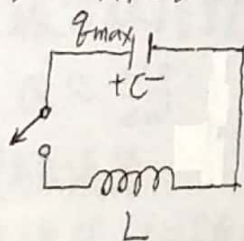 qmax
+C-
L